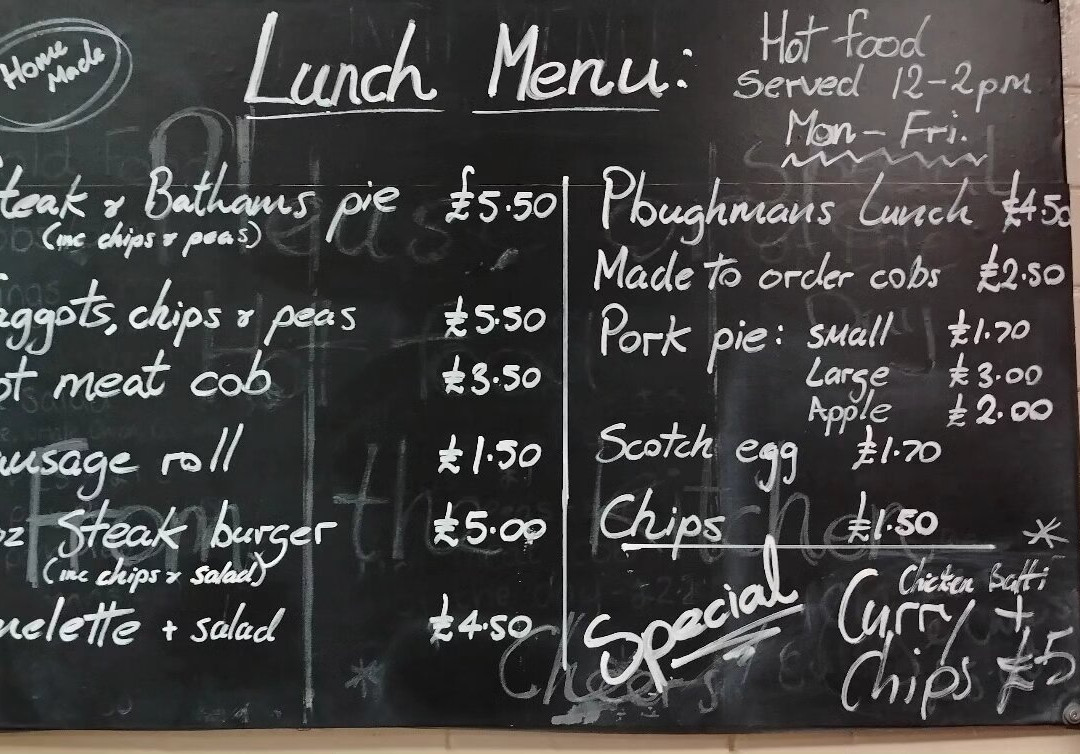 Home
Made
Lunch Menu:
Hot food
Served 12-2pm
Mon - Fri.
teak & Bathams pie £5.50
(inc chips & peas)
aggots, chips & peas £5.50
ot meat cob £3.50
ausage roll £1.50
oz Steak burger £5.00
(inc chips & salad)
melette + salad £4.50
Ploughmans Lunch £4.50
Made to order cobs £2.50
Pork pie: small £1.70
Large £3.00
Apple £2.00
Scotch egg £1.70
Chips £1.50
*
Special
Chicken Balti
Curry +
Chips £5